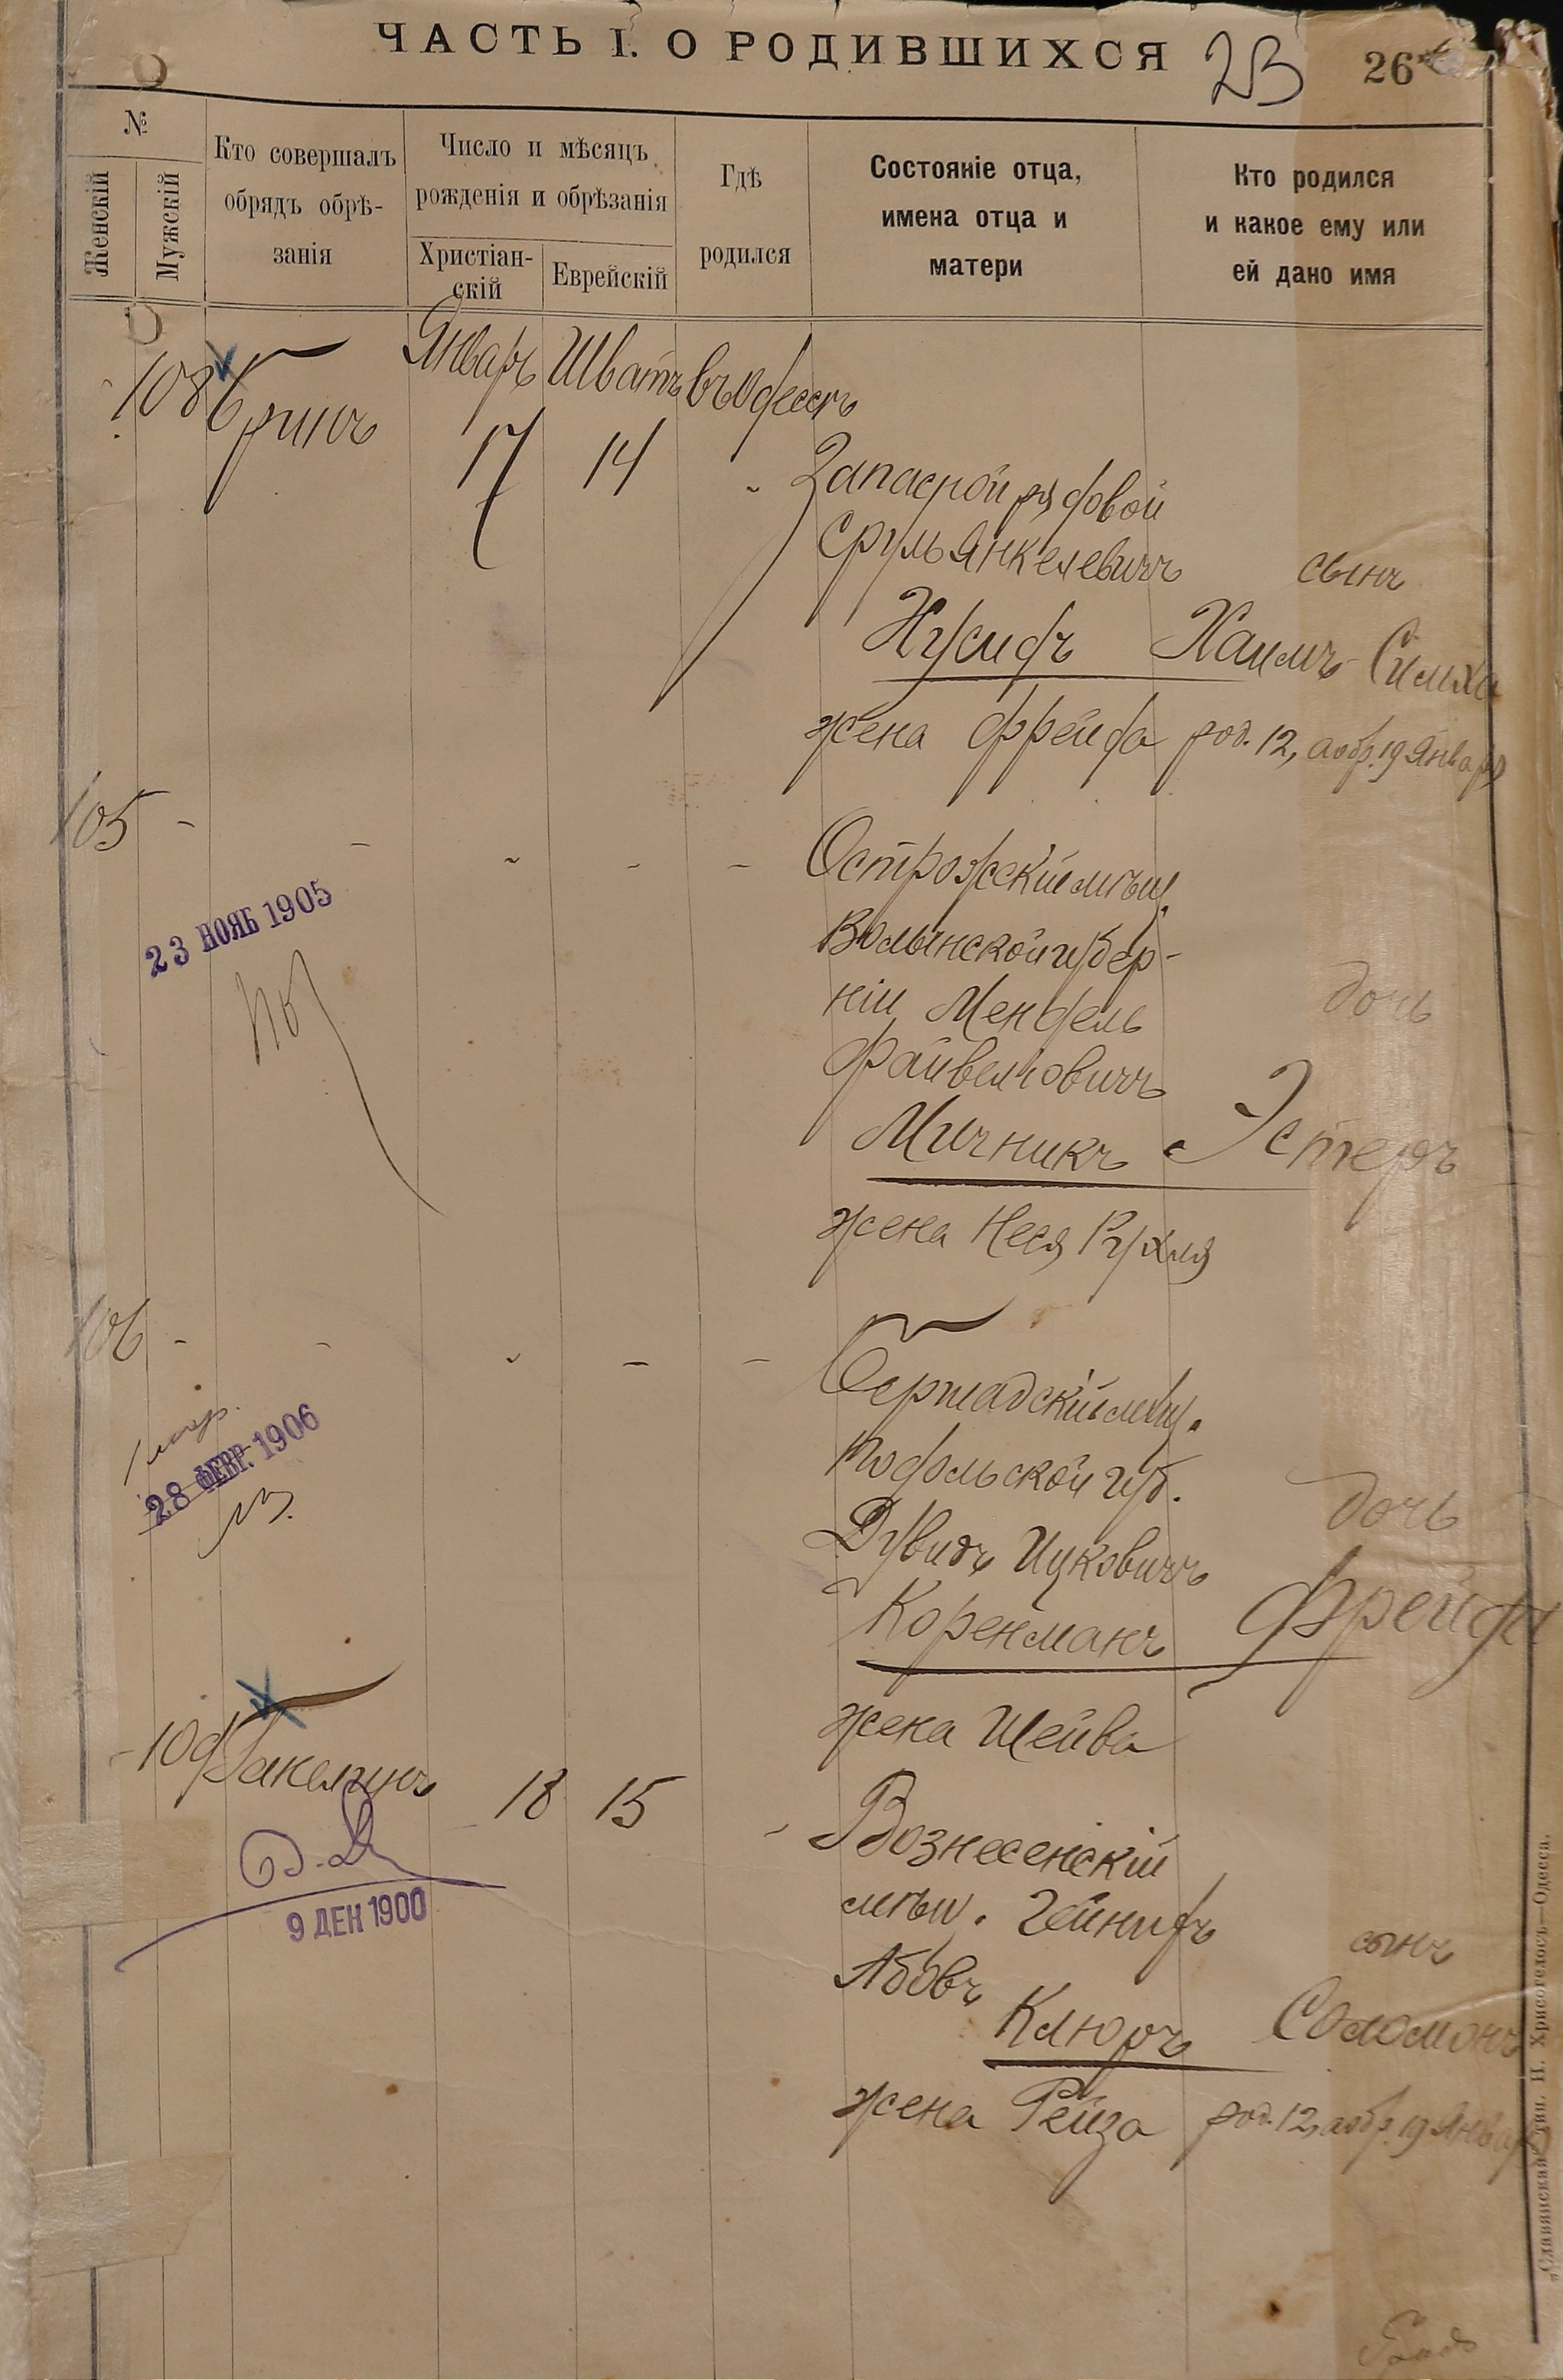 ЧАСТЬ I. О РОДИВШИХСЯ 23 26
№
Женскій
Мужскій
Кто совершалъ
обрядъ обрѣ-
занія
Число и мѣсяцъ
рожденія и обрѣзанія
Христіан-
скій
Еврейскій
Гдѣ
родился
Состояніе отца,
имена отца и
матери
Кто родился
и какое ему или
ей дано имя
Январь Шватъ въ Одессѣ
108 Гринъ 17 14
Запасной рядовой
Сруль Янкелевичъ сынъ
Нусифъ Хаимъ-Симха
жена Фрейда род. 12, а обр. 19 Января
105 - - - - -
Острожскій мѣщ.
23 НОЯБ 1905
Волынской губер-
ніи Мендель дочь
Файвелювичъ
Мичникъ Эстеръ
жена Неся Рухля
106 - - - - -
Бершадскій мѣщ.
28 ФЕВР. 1906
Подольской губ.
дочь
Дувидъ Ицковичъ
Коренманъ Фрейда
жена Шейва
109 18 15 -
Вознесенскій
9 ДЕК 1900
мѣщ. сынъ
Абовъ
Клюръ Соломонъ
жена Рейза род. 12, а обр. 19 Января
„Славянская" тип. Н. Хрисогелосъ—Одесса.